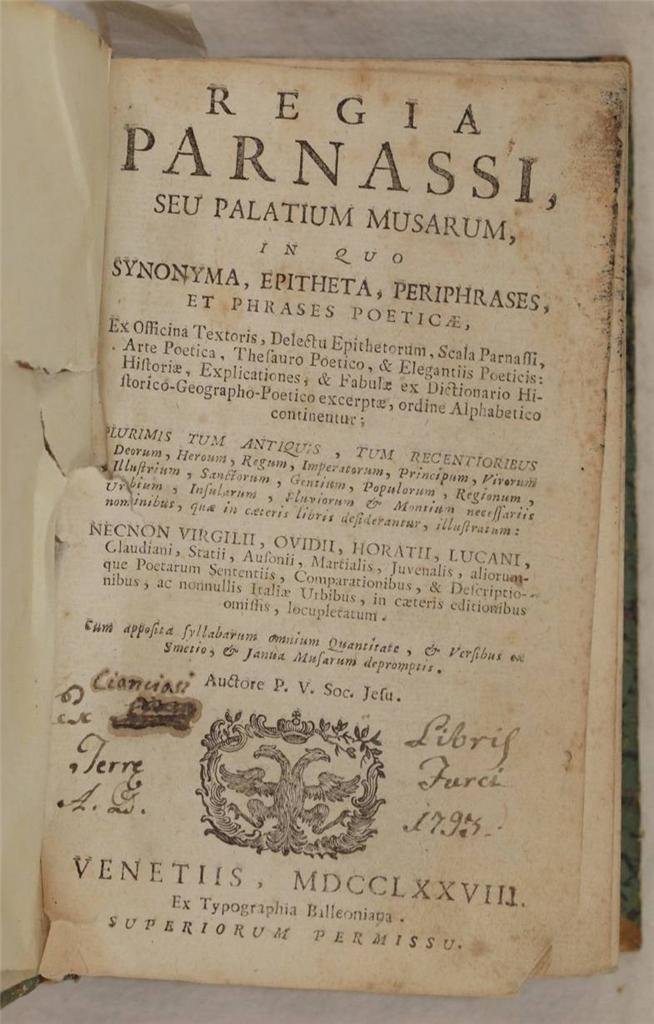 REGIA
PARNASSI,
SEU PALATIUM MUSARUM,
IN QUO
SYNONYMA, EPITHETA, PERIPHRASES,
ET PHRASES POETICÆ,
Ex Officina Textoris, Delectu Epithetorum, Scala Parnaſſi,
Arte Poetica, Theſauro Poetico, & Elegantiis Poeticis:
Hiſtoriæ, Explicationes, & Fabulæ ex Dictionario Hi-
ſtorico-Geographo-Poetico excerptæ, ordine Alphabetico
continentur;
PLURIMIS TUM ANTIQUIS, TUM RECENTIORIBUS
Deorum, Heroum, Regum, Imperatorum, Principum, Virorum
Illuſtrium, Sanctorum, Gentium, Populorum, Regionum,
Urbium, Inſularum, Fluviorum & Montium neceſſariis
nominibus, quæ in cæteris libris deſiderantur, illuſtratum:
NECNON VIRGILII, OVIDII, HORATII, LUCANI,
Claudiani, Statii, Auſonii, Martialis, Juvenalis, aliorum-
que Poetarum Sententiis, Comparationibus, & Deſcriptio-
nibus, ac nonnullis Italiæ Urbibus, in cæteris editionibus
omiſſis, locupletatum.
Cum appoſita ſyllabarum omnium Quantitate, & Verſibus ex
Smetio, & Janua Muſarum depromptis.
Auctore P. V. Soc. Jeſu.
Cianciosi
Ex
Libris
Terre
Furci
A. D.
1793.
VENETIIS, MDCCLXXVIII.
Ex Typographia Balleoniana.
SUPERIORUM PERMISSU.